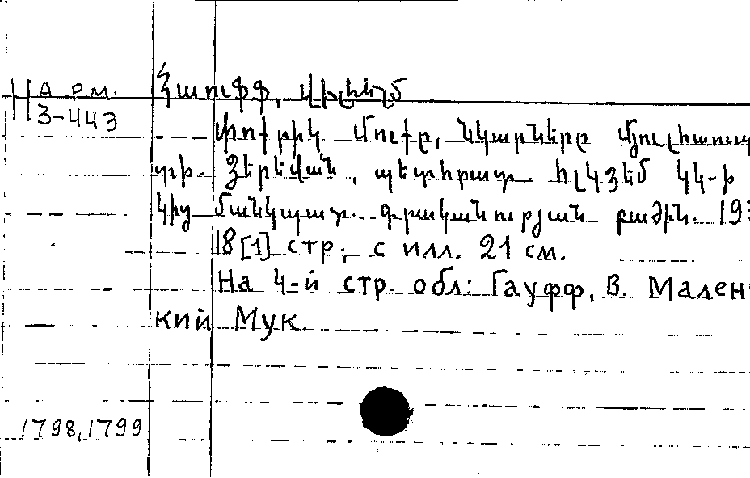 Арм.
3-443
Հաուֆֆ, Վիլհելմ
Փոքրիկ Մուքը, նկարները Մյուլհաուպ
տի. Երևան, պետհրատ ՀԼԿՅԵՄ ԿԿ-ի
կից մանկապատ. գրականության բաժին. 193
18[1] стр., с илл. 21 см.
На 4-й стр. обл: Гауфф, В. Мален
кий Мук
1798,1799